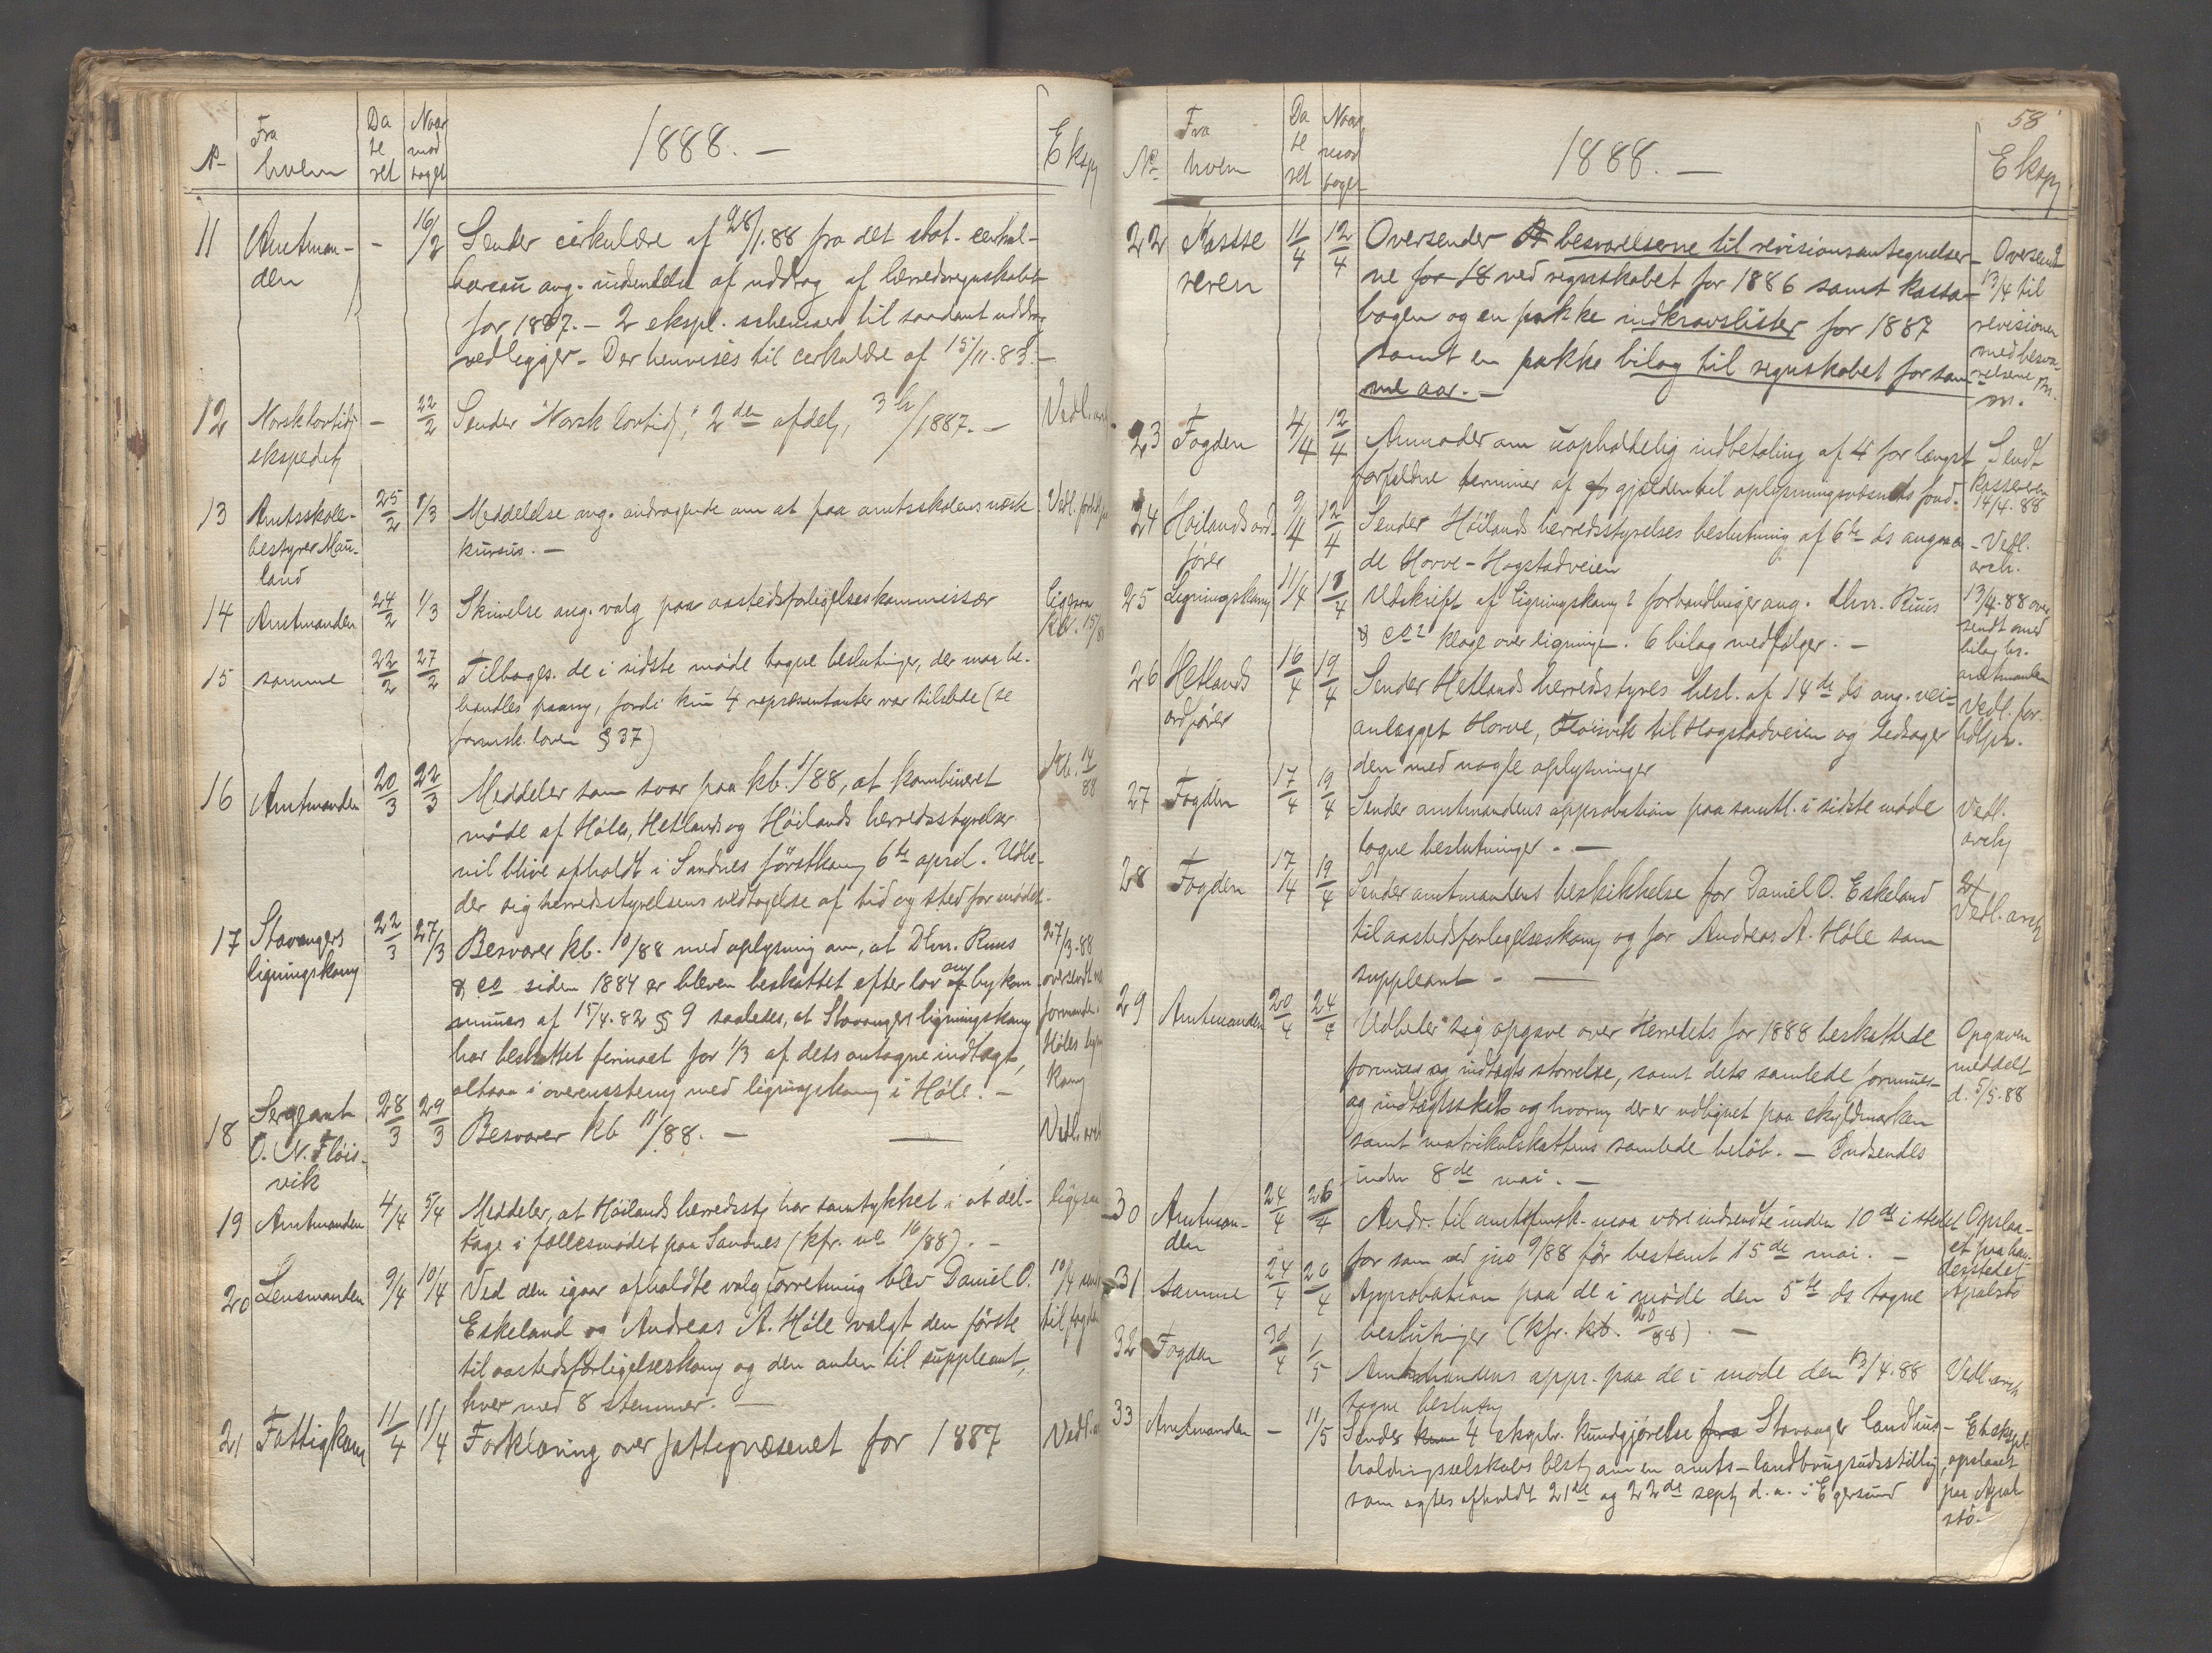 1888. —
No Fra hvem Dateret Naar modtaget Eksp
11 Amtmanden — 16/2 Sender cirkulære af 28/1.88 fra det stat. central-
bureau ang. indsendelse af uddrag af herredsregnskabet
for 1887. — 2 ekspl. schemaer til saadant uddrag
vedlegger — Der henvises til cirkulære af 15/11.83. —
12 Norsk lovtid. ekspedit — 22/2 Sender "Norsk lovtid", 2den afdel, 3 h/1887. — Vedl. ark
13 Amtsskole-bestyrer Mauland 25/2 1/3 Meddelelse ang. andragende om at faa amtsskolens næste Vedl.
kursus. —
14 Amtmanden 24/2 1/3 Skrivelse ang. valg paa aastedsforligelseskommissær Ligesaa
15 samme 22/2 27/2 Tilbages. de i sidste møde tagne beslutninger, der maa be-
handles paany, fordi kun 4 repræsentanter var tilstede (se
formsk. loven § 37)
16 Amtmanden 20/3 22/3 Meddeler som svar paa kb. 1/88, at kombineret Kb. 14/88
møde af Høle, Hetlands og Høilands herredsstyrelser
vil blive afholdt i Sandnes førstkom 6te april. Udbe-
der sig herredsstyrelsens vedtagelse af tid og sted for mødet.
17 Stavangers ligningskom 22/3 27/3 Besvarer kb. 10/88 med oplysning om, at Dhrr. Ruus 27/3.88
& co siden 1884 er bleven beskattet efter lov ang bykom- oversendt
munes af 15/4.82 § 9 saaledes, at Stavangers ligningskom formanden i
har beskattet firmaet for 1/3 af dets antagne indtægt, Høles lign
altsaa i overensstem med ligningskom i Høle. — kom
18 Sergeant O. N. Fløisvik 28/3 29/3 Besvarer kb 11/88. — Vedl. ark
19 Amtmanden 4/4 5/4 Meddeler, at Høilands herredssty har samtykket i at del- ligesaa
tage i fællesmødet paa Sandnes (kfr. no 16/88). —
20 Lensmanden 9/4 10/4 Ved den igaar afholdte valgforretning blev Daniel O. 10/4 sendt
Eskeland og Andreas A. Høle valgt den første til fogden
til aastedsforligelseskom og den anden til suppleant,
hver med 8 stemmer. —
21 Fattigkom 11/4 11/4 Forklaring over fattigvæsenet for 1887 Vedl.
58
1888. —
No Fra hvem Dateret Naar modtaget Eksp
22 Kassereren 11/4 12/4 Oversender besvarelserne til revisionsantegnelser- Oversendt
ne for 18 ved regnskabet for 1886 samt kassa- 13/4 til
bogen og en pakke indkravslister for 1887 revisionen
samt en pakke bilag til regnskabet for sam- med besva-
me aar. — relserne m. m.
23 Fogden 4/4 12/4 Anmoder om uopholdelig indbetaling af 4 for længst Sendt
forfaldne terminer af gjælden til oplysningsvæsenets fond. kassereren 14/4.88
24 Høilands ordfører 9/4 12/4 Sender Høilands herredsstyrelses beslutning af 6te ds angaaen- Vedl.
de Horve-Hogstadveien arch.
25 Ligningskom 11/4 12/4 Udskrift af ligningskoms forhandlinger ang. dhrr. Ruus 13/4.88 over
& cos klage over ligningen. 6 bilag medfølger. — sendt med
bilag hr. amtmanden
26 Hetlands ordfører 16/4 19/4 Sender Hetlands herredsstyres besl. af 14de ds ang. vei- Vedl. for
anlægget Horve, Fløisvik til Hogstadveien og ledsager hdlpr.
den med nogle oplysninger
27 Fogden 17/4 19/4 Sender amtmandens approbation paa samtl. i sidste møde Vedl.
tagne beslutninger. — arch
28 Fogden 17/4 19/4 Sender amtmandens beskikkelse for Daniel O. Eskeland Vedl. arch
til aastedsforligelseskom og for Andreas A. Høle som
suppleant. —
29 Amtmanden 20/4 24/4 Udbeder sig opgave over Herredets for 1888 beskattede Opgaven
formues og indtægts størrelse, samt dets samlede formues- meddelt
og indtægtsskat og hvormeget der er udlignet paa skyldmarken d. 5/5.88
samt matrikulskattens samlede beløb. — Indsendes
inden 8de mai. —
30 Amtmanden 24/4 26/4 Andr. til amtsformsk. maa være indsendte inden 10de istedet Opslaa-
for som ved jno 9/88 før bestemt 15de mai. — et paa han-
delsstedet Apalstø
31 samme 24/4 26/4 Approbation paa de i møde den 5te ds. tagne
beslutninger (kfr. kb. 20/88). —
32 Fogden 30/4 1/5 Amtmandens appr. paa de i møde den 13/4.88 Vedl. arch
tagne beslutn
33 Amtmanden — 11/5 Sender 4 eksplr. kundgjørelse fra Stavanger landhus- Et ekspl.
holdningsselskabs besty om en amts-landbrugsudstilling, opslaaet
som agtes afholdt 21de og 22de sept d. a. i Egersund paa Apal-
stø.